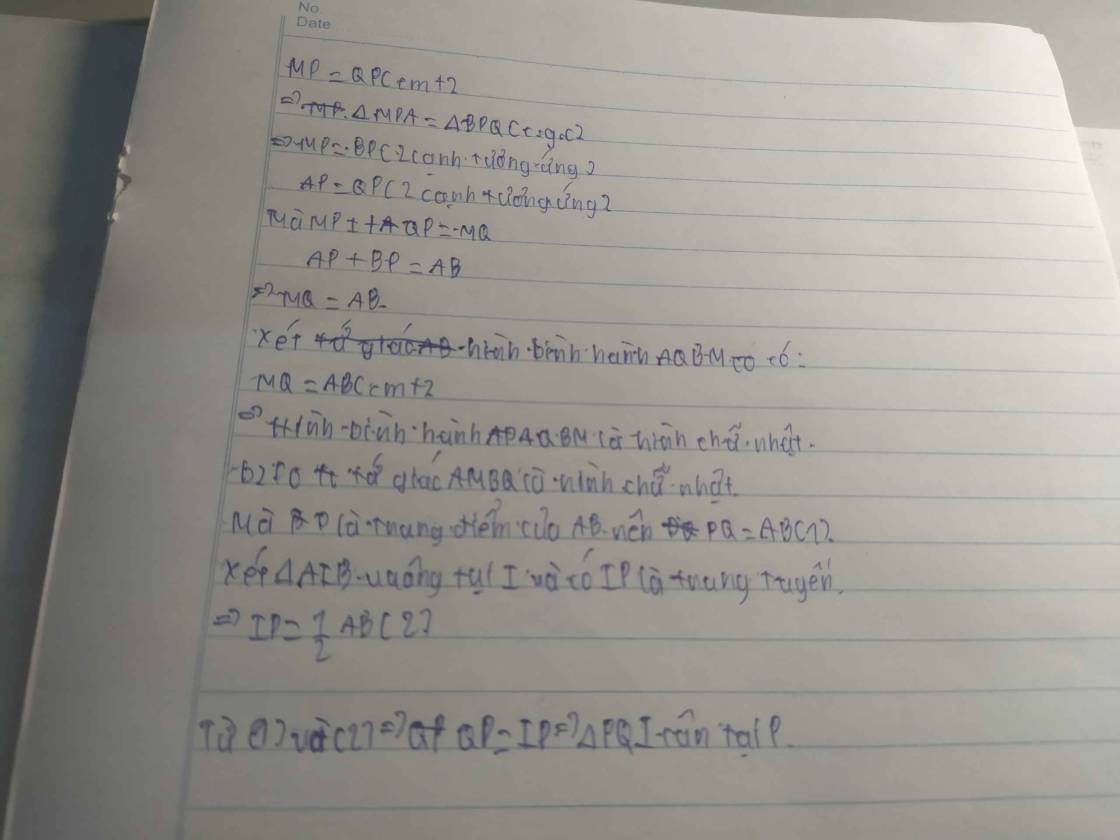 No.
Date
MP = QP(cmt)
=> ΔMPA = ΔBPQ(c.g.c)
=> MP = BP(2 cạnh tương ứng)
AP = QP(2 cạnh tương ứng)
Mà MP + QP = MQ
AP + BP = AB
=> MQ = AB
Xét hình bình hành AQBM có:
MQ = AB(cmt)
=> Hình bình hành AQBM là hình chữ nhật.
b) Có tứ giác AMBQ là hình chữ nhật.
Mà P là trung điểm của AB nên PQ = AB(1).
Xét ΔAIB vuông tại I và có IP là trung tuyến.
=> IP = 1/2 AB(2)
Từ (1) và (2) => QP = IP => ΔPQI cân tại P.